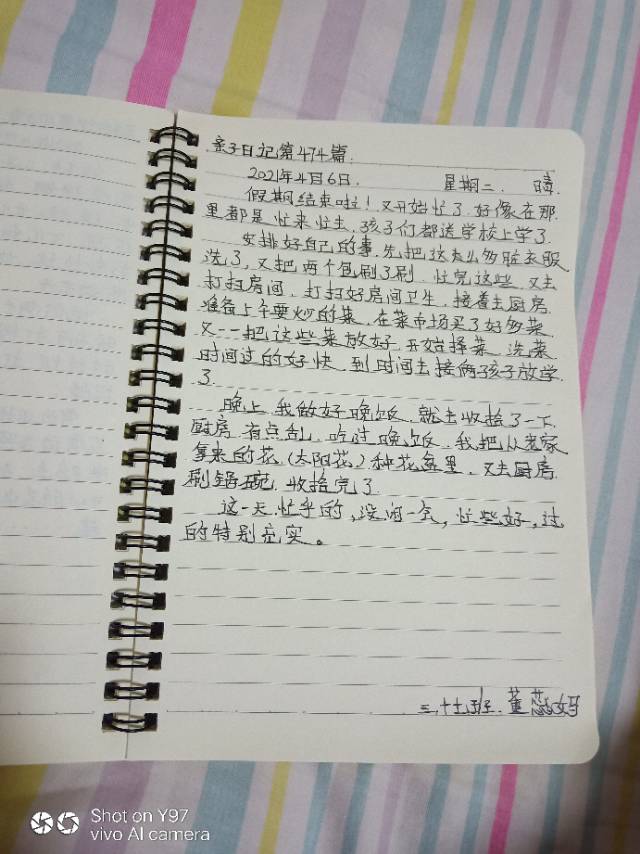 亲子日记第474篇.
2021年4月6日. 星期二. 晴.
假期结束啦！又开始忙了.好像在那
里都是忙来忙去.孩子们都送学校上学了.
安排好自己的事.先把这大么多脏衣服
洗了,又把两个包刷了刷.忙完这些.又去
打扫房间.打扫好房间卫生.接着去厨房.
准备上午要炒的菜.在菜市场买了好多菜.
又一一把这些菜放好.开始择菜.洗菜
时间过的好快.到时间去接俩孩子放学
了.
晚上.我做好晚饭.就去收拾了一下.
厨房有点乱.吃过晚饭.我把从老家
拿来的花.(太阳花)种花盆里.又去厨房.
刷锅碗.收拾完了.
这一天忙乎的,没闲一会,忙些好,过
的特别充实。
三.十七班.董蕊妈
Shot on Y97
vivo AI camera